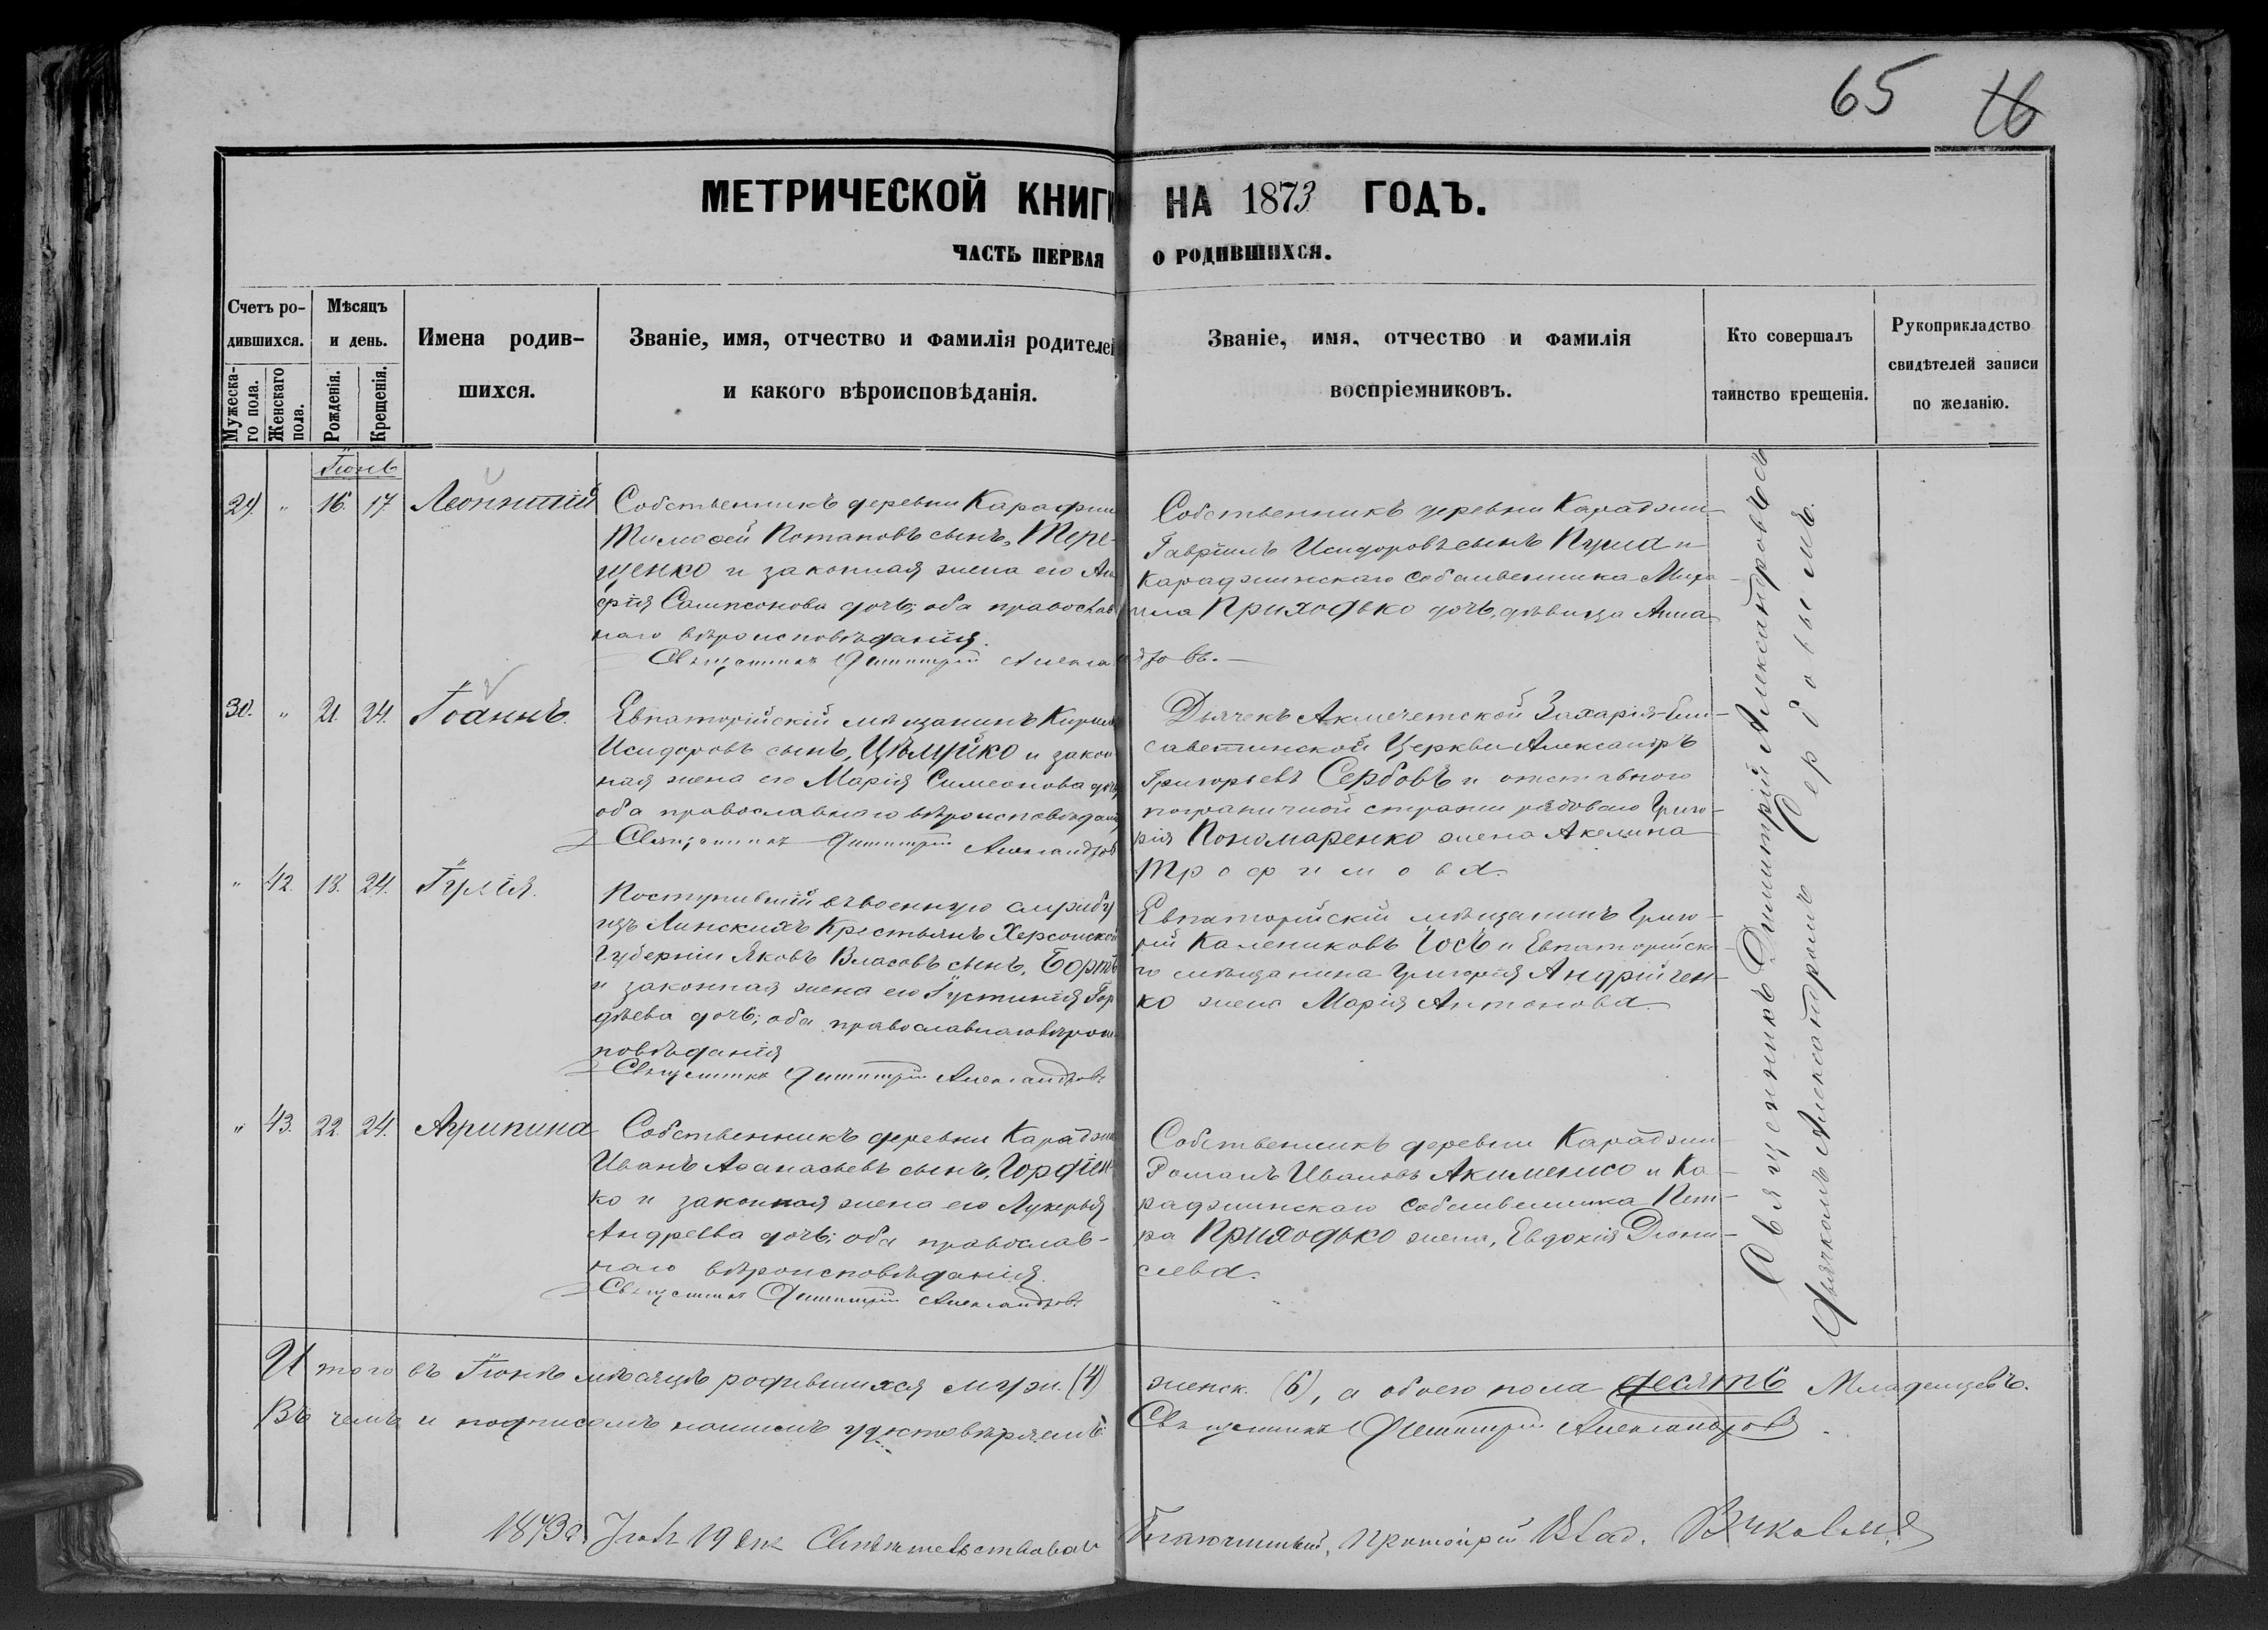 65 16
МЕТРИЧЕСКОЙ КНИГИ НА 1873 ГОДЪ.
ЧАСТЬ ПЕРВАЯ О РОДИВШИХСЯ.
Счетъ родившихся.
Мужескаго пола.
Женскаго пола.
Мѣсяцъ и день.
Рожденія.
Крещенія.
Имена родившихся.
Званіе, имя, отчество и фамилія родителей
и какого вѣроисповѣданія.
Званіе, имя, отчество и фамилія
воспріемниковъ.
Кто совершалъ
таинство крещенія.
Рукоприкладство
свидѣтелей записи
по желанію.
Іюнь
29. " 16. 17 Леонтій
Собственникъ деревни Караджи
Тимоѳей Потаповъ сынъ, Тере-
щенко и законная жена его
Сампсонова дочь; оба православ
наго вѣроисповѣданія.
Священникъ Димитрій Александровъ.
Собственникъ деревни Караджи
Гавріилъ Исидоровъ сынъ и
Караджинскаго собственника Миха-
ила Приходько дочь, дѣвица Анна
30. " 21. 24. Іоаннъ.
Евпаторійскій мѣщанинъ Кирилъ
Исидоровъ сынъ, Цѣлуйко и закон
ная жена его Марія Симеонова дочь
оба православнаго вѣроисповѣданія
Священникъ Димитрій Александровъ
Дьячекъ Акмечетской Захаріе-Ели-
саветинской Церкви Александръ
Григорьевъ Сербовъ и отставного
пограничной стражи рядового Григо-
рія Пономаренко жена Акелина
Трофимова.
" 42. 18. 24. Іулія.
Поступившій въ военную службу
изъ Крестьянъ Херсонской
Губерніи Яковъ Власовъ сынъ,
и законная жена его Іустинія Гор
дѣева дочь; оба православнаго вѣроис
повѣданія
Священникъ Димитрій Александровъ
Евпаторійскій мѣщанинъ Григо-
рій Калениковъ и Евпаторійска-
го мѣщанина Григорія Андрійчен-
ко жена Марія Антонова.
" 43. 22. 24. Агрипина
Собственникъ деревни Караджи
Иванъ Аѳанасьевъ сынъ, Гордіен-
ко и законная жена его Лукерья
Андреева дочь; оба православ-
наго вѣроисповѣданія.
Священникъ Димитрій Александровъ
Собственникъ деревни Караджи
Романъ Ивановъ Акименко и Ка-
раджинскаго собственника Пет-
ра Приходько жена, Евдокія Діони-
сіева.
Священникъ Димитрій Александровъ съ
Дьячкомъ Александромъ Сербовымъ.
Итого въ Іюнѣ мѣсяцѣ родившихся муж. (4) женск. (6), а обоего пола десять Младенцевъ.
Въ чемъ и подписомъ нашимъ удостовѣряемъ: Священникъ Димитрій Александровъ.
1873 г. Іюля 19 дня Свидѣтельствовалъ Благочинный, Протоіерей Влад.